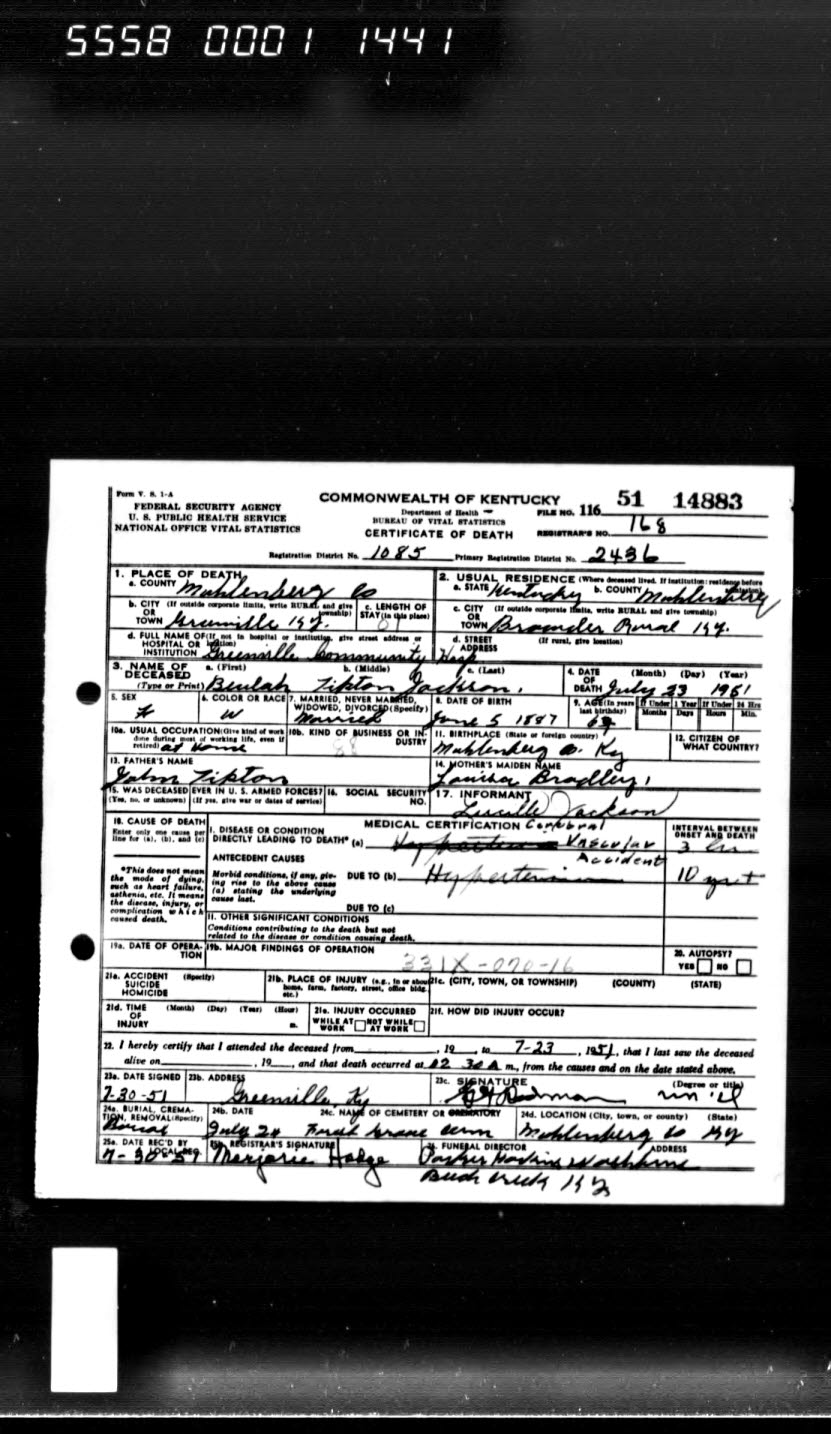 5558 0001 1441
Form V. S. 1-A
FEDERAL SECURITY AGENCY
U. S. PUBLIC HEALTH SERVICE
NATIONAL OFFICE VITAL STATISTICS
COMMONWEALTH OF KENTUCKY
Department of Health
BUREAU OF VITAL STATISTICS
CERTIFICATE OF DEATH
FILE NO. 116 51 14883
REGISTRAR'S NO. 168
Registration District No. 1085 Primary Registration District No. 2436
1. PLACE OF DEATH
a. COUNTY Muhlenberg Co
2. USUAL RESIDENCE (Where deceased lived. If institution: residence before admission)
a. STATE Kentucky b. COUNTY Muhlenberg
b. CITY OR TOWN (If outside corporate limits, write RURAL and give township) Greenville Ky.
c. LENGTH OF STAY (in this place)
c. CITY OR TOWN (If outside corporate limits, write RURAL and give township) Browder Rural Ky.
d. FULL NAME OF HOSPITAL OR INSTITUTION (If not in hospital or institution, give street address or location) Greenville Community Hosp
d. STREET ADDRESS (If rural, give location)
3. NAME OF DECEASED (Type or Print) a. (First) b. (Middle) c. (Last)
Beulah Tipton Jackson
4. DATE OF DEATH (Month) (Day) (Year) July 23 1951
5. SEX F
6. COLOR OR RACE W
7. MARRIED, NEVER MARRIED, WIDOWED, DIVORCED (Specify) Married
8. DATE OF BIRTH June 5 1887
9. AGE (In years last birthday) If Under 1 Year Months Days If Under 24 Hrs Hours Min.
10a. USUAL OCCUPATION (Give kind of work done during most of working life, even if retired) at Home
10b. KIND OF BUSINESS OR INDUSTRY 88
11. BIRTHPLACE (State or foreign country) Muhlenberg Co. Ky
12. CITIZEN OF WHAT COUNTRY?
13. FATHER'S NAME
John Tipton
14. MOTHER'S MAIDEN NAME
Bradley
15. WAS DECEASED EVER IN U. S. ARMED FORCES? (Yes, no, or unknown) (If yes, give war or dates of service)
16. SOCIAL SECURITY NO.
17. INFORMANT
Lucille Jackson
18. CAUSE OF DEATH
Enter only one cause per line for (a), (b), and (c)
*This does not mean the mode of dying, such as heart failure, asthenia, etc. It means the disease, injury, or complication which caused death.
MEDICAL CERTIFICATION
INTERVAL BETWEEN ONSET AND DEATH
I. DISEASE OR CONDITION DIRECTLY LEADING TO DEATH* (a) Cerebral Vascular Accident
3 hr
ANTECEDENT CAUSES
Morbid conditions, if any, giving rise to the above cause (a) stating the underlying cause last.
DUE TO (b) Hypertension 10 yr +
DUE TO (c)
II. OTHER SIGNIFICANT CONDITIONS
Conditions contributing to the death but not related to the disease or condition causing death.
19a. DATE OF OPERATION
19b. MAJOR FINDINGS OF OPERATION
331X-070-16
20. AUTOPSY? YES NO
21a. ACCIDENT SUICIDE HOMICIDE (Specify)
21b. PLACE OF INJURY (e.g., in or about home, farm, factory, street, office bldg. etc.)
21c. (CITY, TOWN, OR TOWNSHIP) (COUNTY) (STATE)
21d. TIME OF INJURY (Month) (Day) (Year) (Hour) m.
21e. INJURY OCCURRED WHILE AT WORK NOT WHILE AT WORK
21f. HOW DID INJURY OCCUR?
22. I hereby certify that I attended the deceased from , 19 , to 7-23, 1951, that I last saw the deceased
alive on , 19 , and that death occurred at 12 30 A m., from the causes and on the date stated above.
23a. DATE SIGNED 23b. ADDRESS 23c. SIGNATURE (Degree or title)
7-30-51 Greenville, Ky
24a. BURIAL, CREMATION, REMOVAL (Specify) 24b. DATE 24c. NAME OF CEMETERY OR CREMATORY 24d. LOCATION (City, town, or county) (State)
Burial July 24 Muhlenberg Co Ky
25a. DATE REC'D BY LOCAL REG. 25b. REGISTRAR'S SIGNATURE 26. FUNERAL DIRECTOR ADDRESS
7-30-51 Marjorie Hodge
Ky